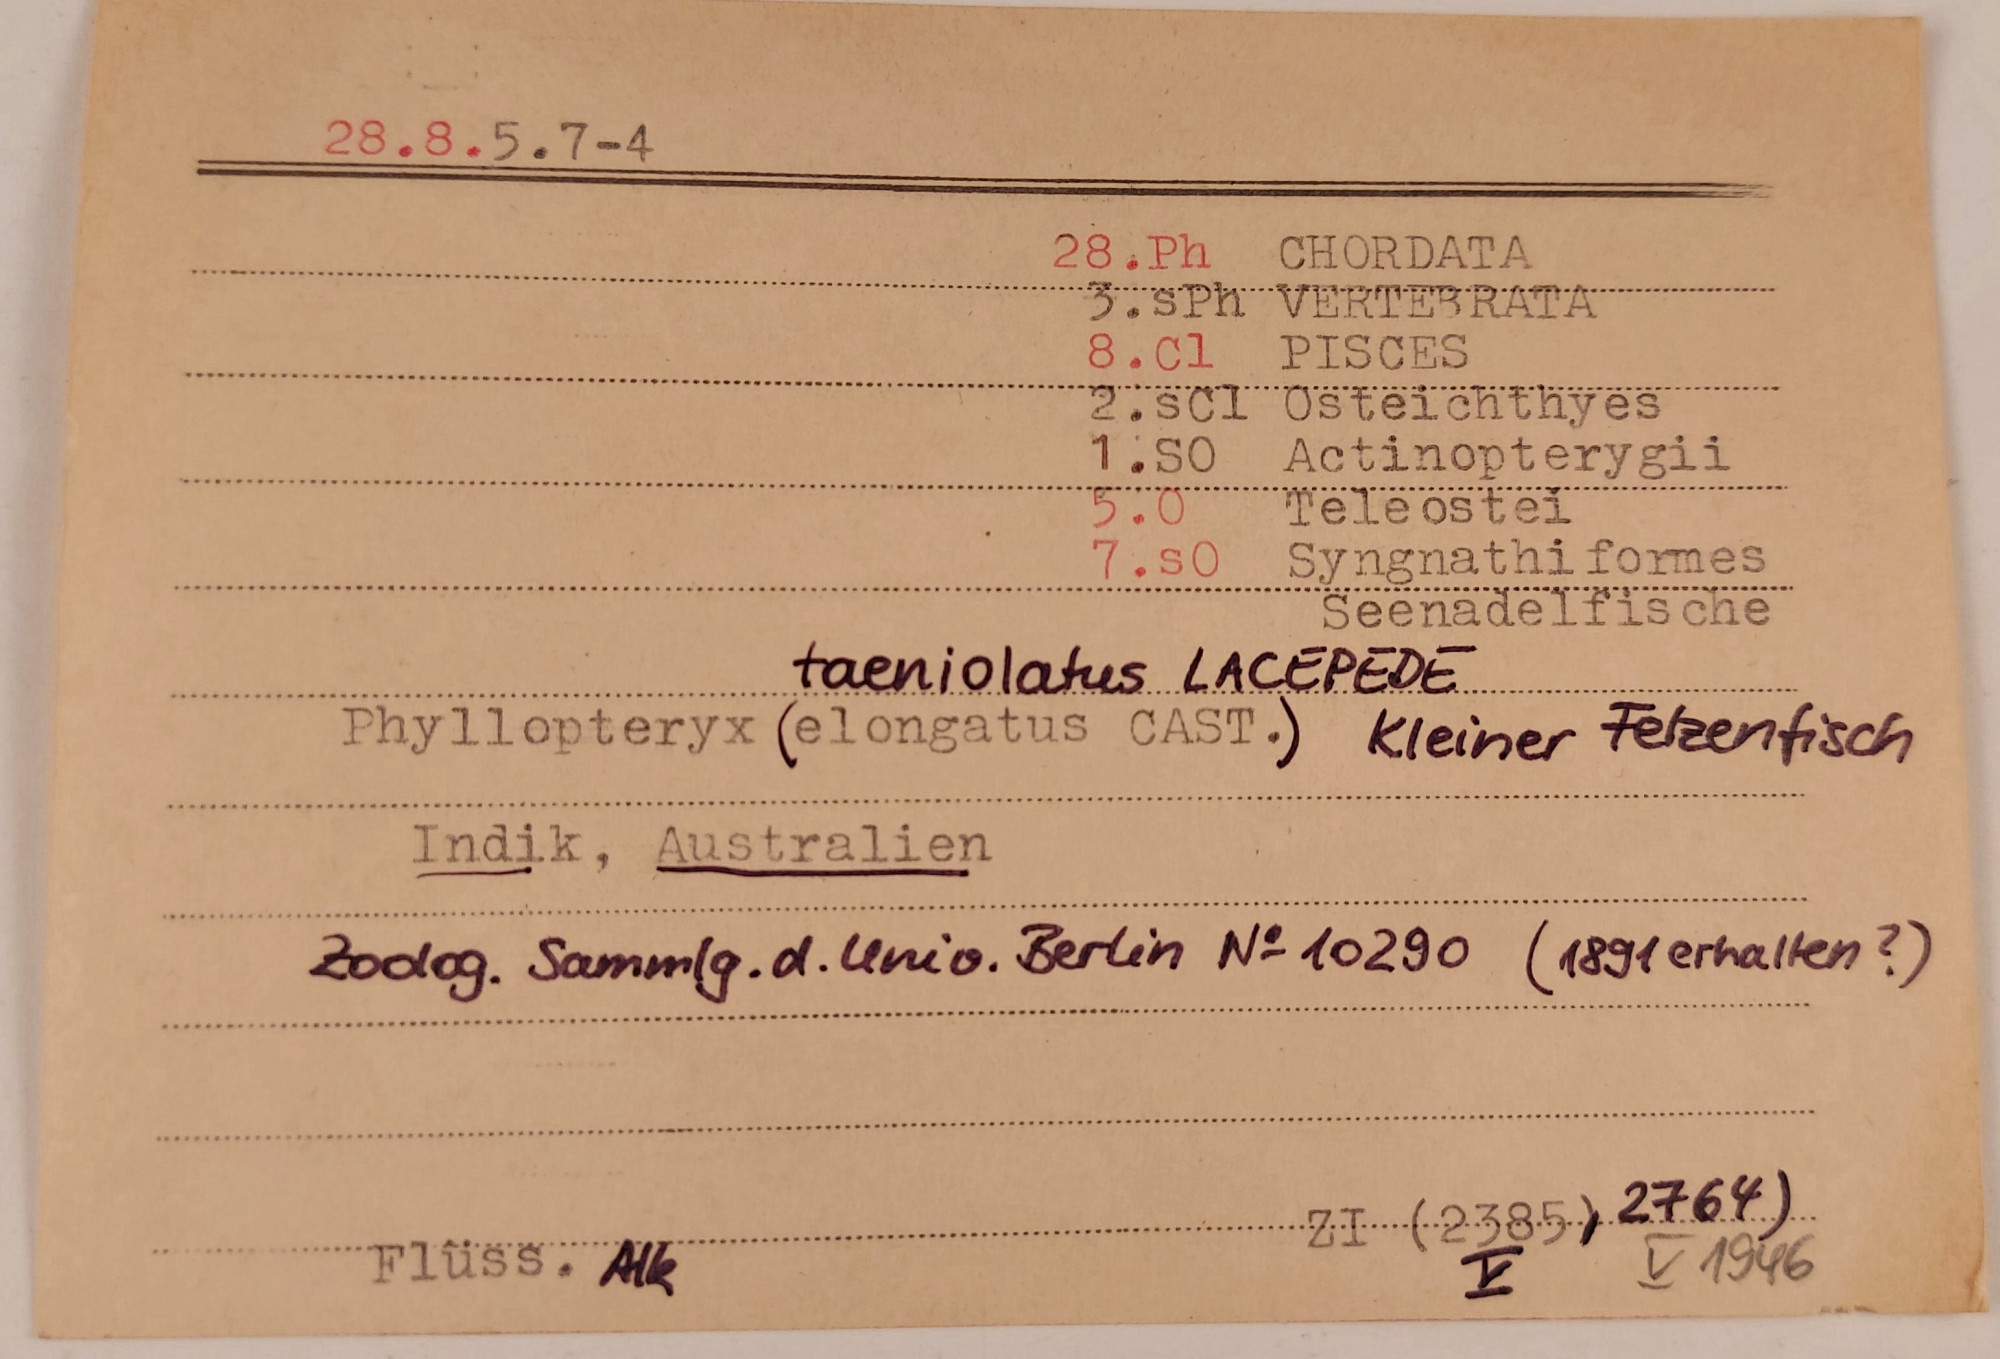 28.8.5.7-4
28.Ph CHORDATA
3.sPh VERTEBRATA
8.Cl PISCES
2.sCl Osteichthyes
1.SO Actinopterygii
5.O Teleostei
7.sO Syngnathiformes
Seenadelfische
taeniolatus LACEPEDE
Phyllopteryx (elongatus CAST.) Kleiner Fetzenfisch
Indik, Australien
Zoolog. Sammlg. d. Univ. Berlin Nº 10290 (1891 erhalten?)
ZI (2385), 2764)
Flüss. Alk V V 1946